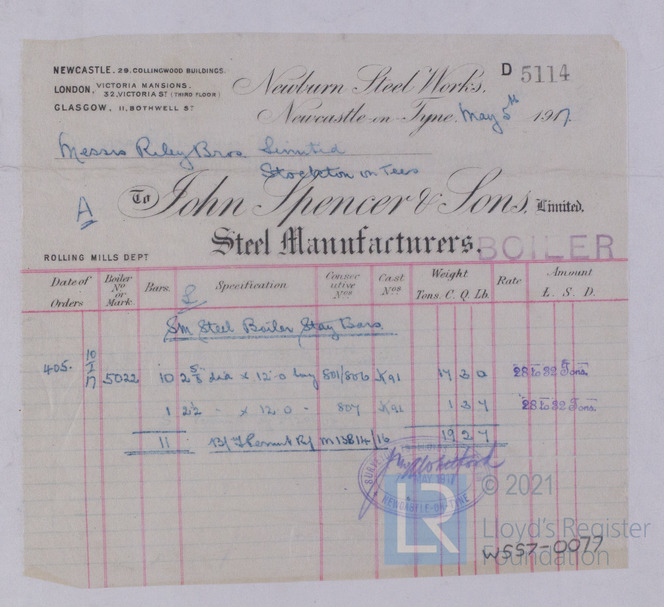 NEWCASTLE. 29. COLLINGWOOD BUILDINGS.
LONDON, VICTORIA MANSIONS.
32, VICTORIA ST (THIRD FLOOR)
GLASGOW, 11, BOTHWELL ST
Newburn Steel Works,
D 5114
Newcastle on Tyne, May 5th 1917.
Messrs Riley Bros. Limited
Stockton on Tees
A
To John Spencer & Sons, Limited.
Steel Manufacturers.
BOILER
ROLLING MILLS DEPT
Date of Orders
Boiler No or Mark.
Bars.
Specification
Consecutive Nos
Cast Nos
Weight
Tons. C. Q. Lb.
Rate
Amount
£. S. D.
SM Steel Boiler Stay Bars
405. 10/1/17 5022 10 2 5/8 dia x 12'.0 long 801/806 K91 17 3 0 28 to 32 Tons.
1 2 1/2 " x 12 0 " 807 K91 1 3 7 28 to 32 Tons.
11 M 13814/16 19 2 7
MAY 1917
NEWCASTLE-ON-TYNE
LR
© 2021
Lloyd's Register
Foundation
W557-0077